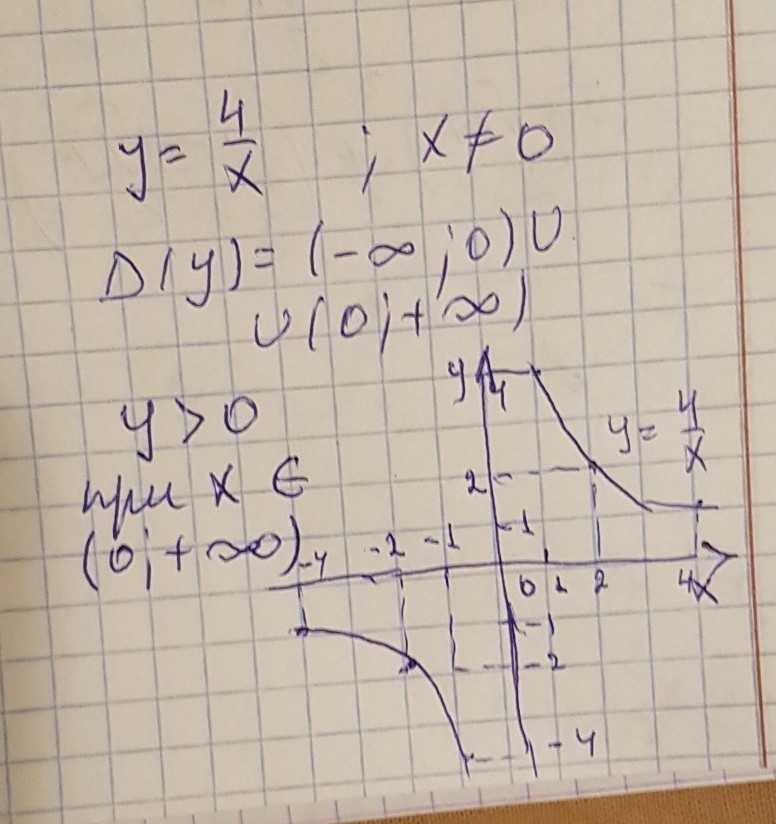 y = 4/x ; x ≠ 0
D(y) = (-∞; 0) ∪
∪ (0; +∞)
y > 0
при x ∈
(0; +∞)
y 4
y = 4/x
2
1
-4 -2 -1 0 1 2 4 x
-1
-2
-4